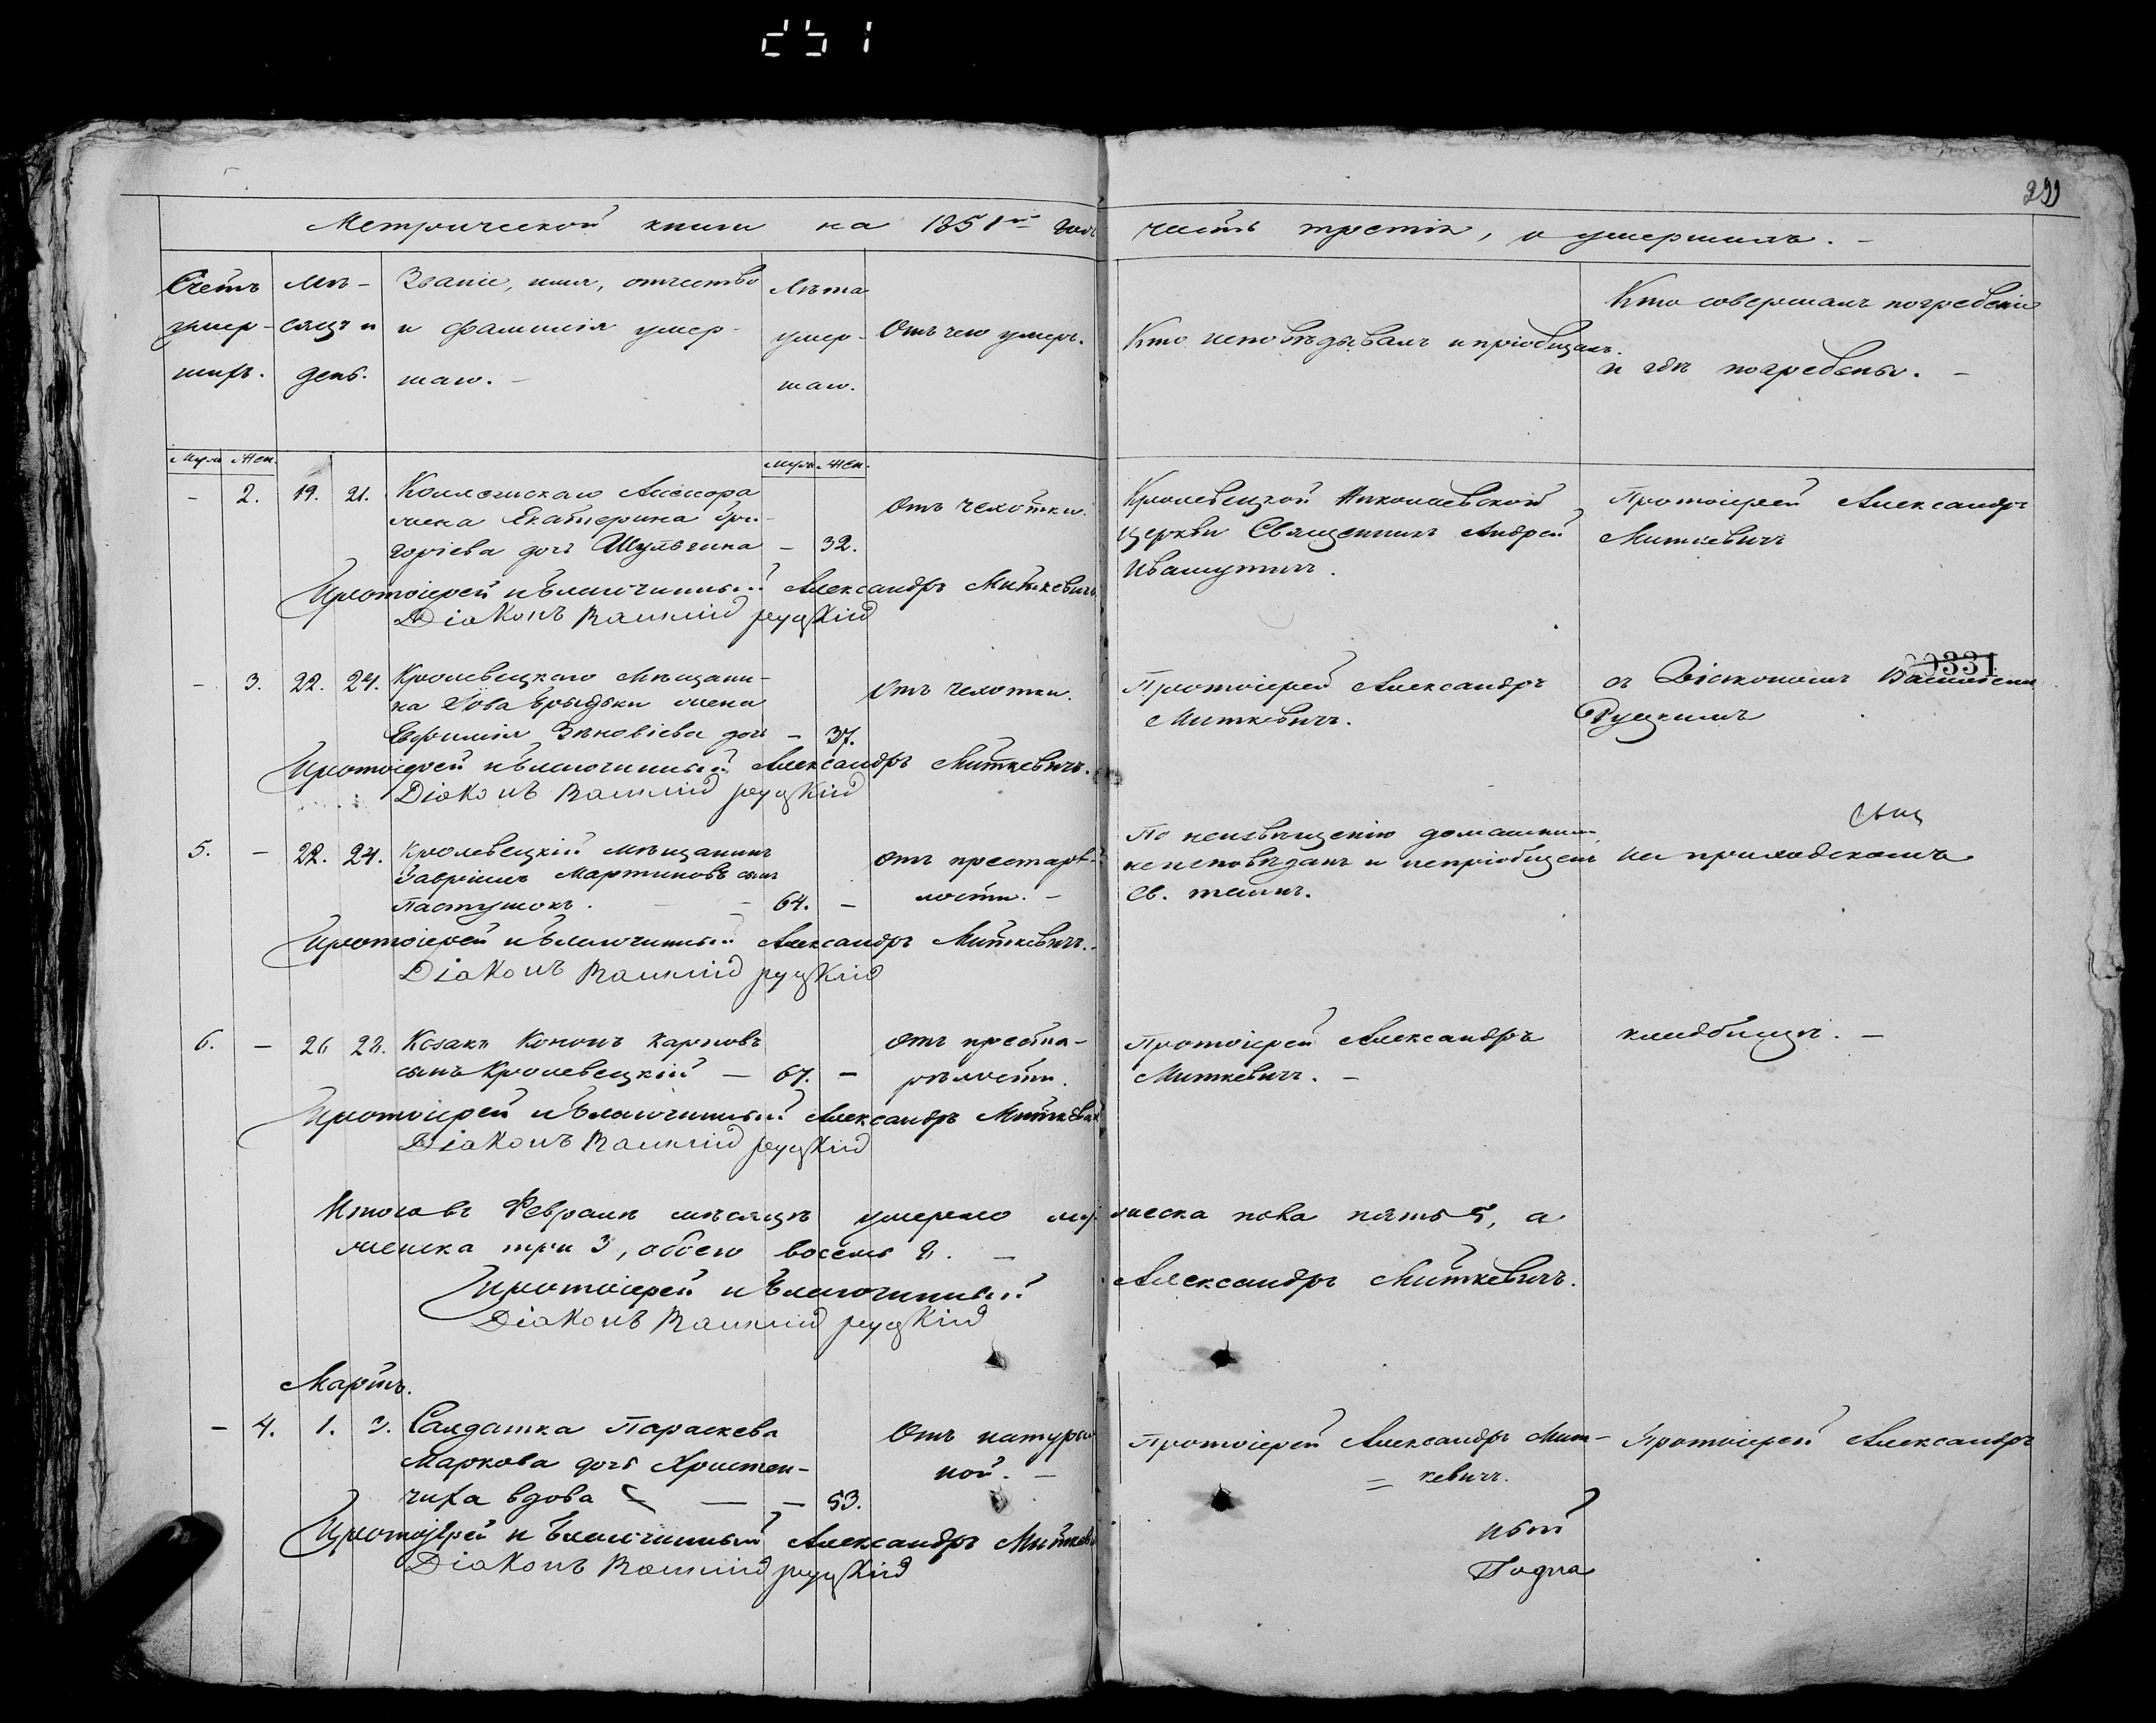 251
299
Метрической книги на 1851й годъ часть третія, о умершихъ. –
Счетъ умер-шихъ.
Мѣ-сяцъ и день.
Званіе, имя, отчество
и фамилія умер-
шаго. –
Лѣта умер-шаго.
Отъ чего умеръ.
Кто исповѣдывалъ и пріобщалъ.
Кто совершалъ погребеніе
и гдѣ погребены. –
Муж. Жен.
Муж. Жен.
– 2. 19. 21. Коллежскаго Ассесора
жена Екатерина Гри-
горіева дочь Шульгина – 32.
Отъ чехотки.
Кролевецкой Николаевской
церкви Священникъ Андрей
Ивашутичъ.
Протоіерей Александръ
Миткевичъ
Протоіерей и Благочинный Александръ Миткевичъ.
Діаконъ Василій Руцкій
– 3. 22. 24. Кролевецкаго Мѣщани-
на жена
Евфимія Зѣновіева дочь – 37.
Отъ чехотки.
Протоіерей Александръ
Миткевичъ.
съ Діакономъ Василіемъ
Руцкимъ
331
Протоіерей и Благочинный Александръ Миткевичъ.
Діаконъ Василій Руцкій
5. – 22. 24. Кролевецкій мѣщанинъ
Гавріилъ Мартиновъ сынъ
Пастушокъ. – 64. –
Отъ престарѣ-
лости. –
По неизвѣщенію домашними
неисповѣданъ и непріобщенъ
Св. таинъ.
на приходскомъ
Протоіерей и Благочинный Александръ Миткевичъ.
Діаконъ Василій Руцкій
6. – 26 28. Козакъ Кононъ Карповъ
сынъ Кролевецкій – 67. –
Отъ преста-
рѣлости.
Протоіерей Александръ
Миткевичъ. –
кладбищѣ. –
Протоіерей и Благочинный Александръ Миткевичъ
Діаконъ Василій Руцкій
Итого въ Февралѣ мѣсяцѣ умерло мужеска пола пять 5, а
женска три 3, обоего восемь 8. –
Протоіерей и Благочинный Александръ Миткевичъ.
Діаконъ Василій Руцкій
Мартъ.
– 4. 1. 3. Салдатка Параскева
Маркова дочь Христен-
чиха вдова – – 53.
Отъ натураль
ной. –
Протоіерей Александръ Мит-
= кевичъ.
Протоіерей Александръ
Протоіерей и Благочинный Александръ Миткевичъ
Діаконъ Василій Руцкій
ный